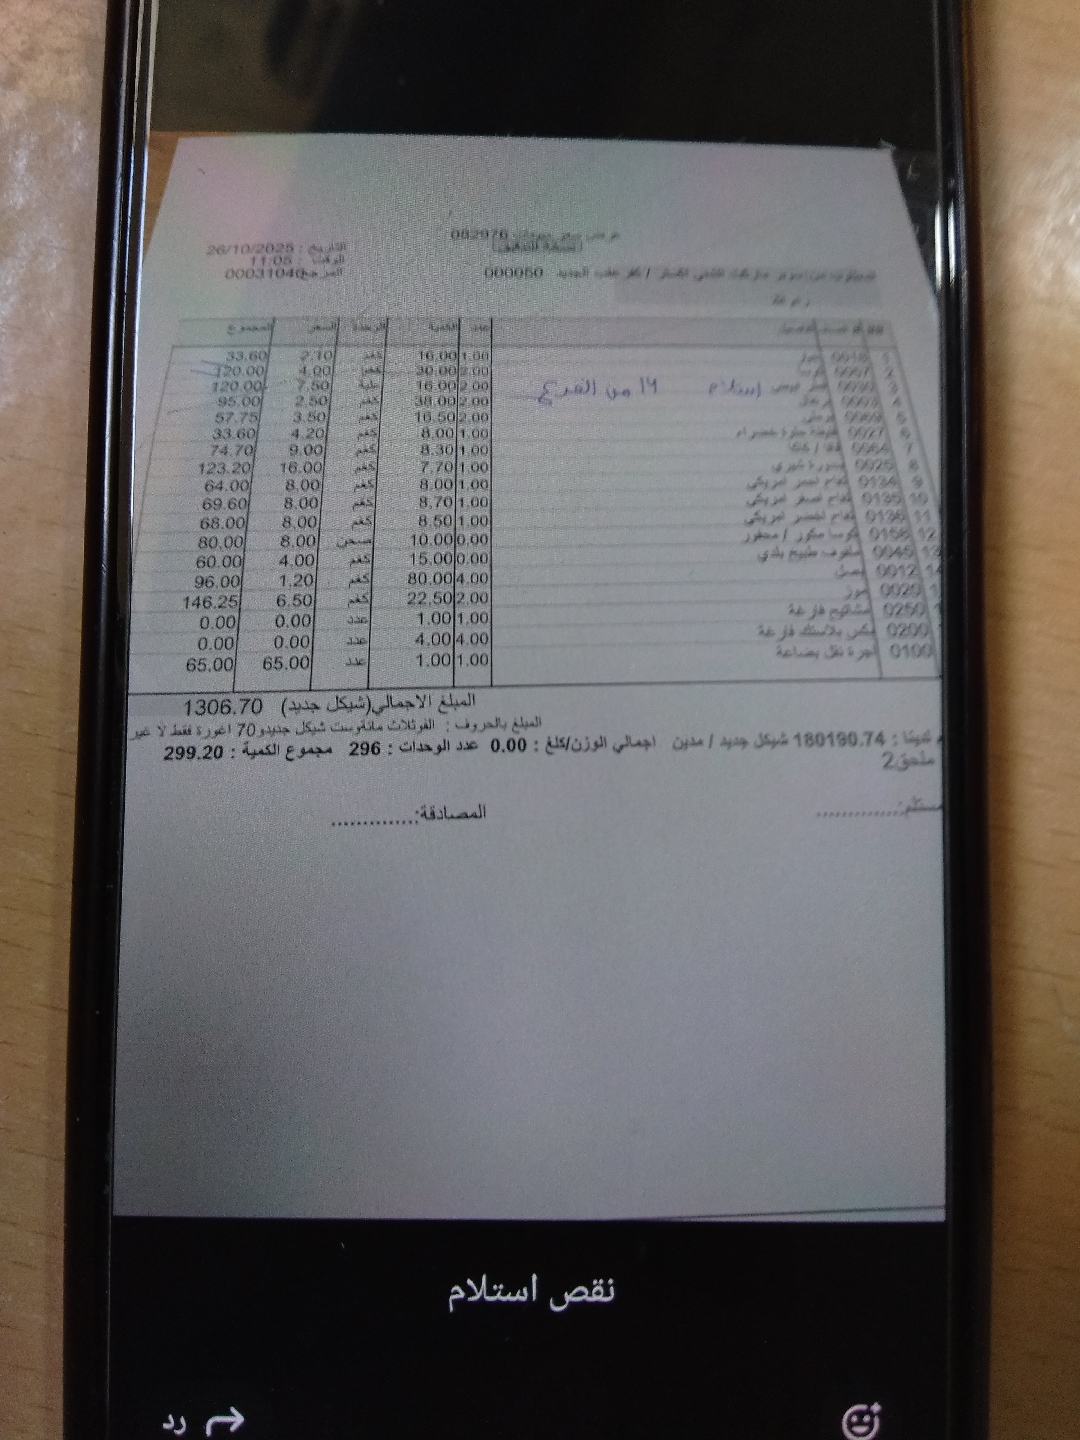 عرض سعر مبيعات 082976
نسخة للتدقيق
التاريخ : 26/10/2025
الوقت : 11:05
المرجع 00031040
000050
المجموع السعر الوحدة الكمية عدد
1 0018 كغم 16.00 1.00 2.10 33.60
2 0007 30.00 2.00 4.00 120.00
3 0030 16.00 2.00 7.50 120.00
استلام ١٤ من الفرع
4 كغم 38.00 2.00 2.50 95.00
5 0069 كغم 16.50 2.00 3.50 57.75
6 0027 فلفلة حلوة خضراء كغم 8.00 1.00 4.20 33.60
7 0064 كغم 8.30 1.00 9.00 74.70
8 0025 بندورة شيري كغم 7.70 1.00 16.00 123.20
9 0134 تفاح احمر امريكي كغم 8.00 1.00 8.00 64.00
10 0135 تفاح اصفر امريكي كغم 8.70 1.00 8.00 69.60
11 0136 تفاح اخضر امريكي كغم 8.50 1.00 8.00 68.00
12 0158 كوسا مكور / محفور صحن 10.00 0.00 8.00 80.00
13 0045 ملفوف طبيخ بلدي كغم 15.00 0.00 4.00 60.00
14 0012 بصل كغم 80.00 4.00 1.20 96.00
0020 موز كغم 22.50 2.00 6.50 146.25
0250 مشاتيح فارغة عدد 1.00 1.00 0.00 0.00
0200 بكس بلاستك فارغة عدد 4.00 4.00 0.00 0.00
0100 اجرة نقل بضاعة عدد 1.00 1.00 65.00 65.00
المبلغ الاجمالي(شيكل جديد) 1306.70
المبلغ بالحروف : الفوثلاث مائةوست شيكل جديدو70 اغورة فقط لا غير
لدينا : 180190.74 شيكل جديد / مدين اجمالي الوزن/كلغ : 0.00 عدد الوحدات : 296 مجموع الكمية : 299.20
ملحق2
المصادقة:..............
نقص استلام
رد